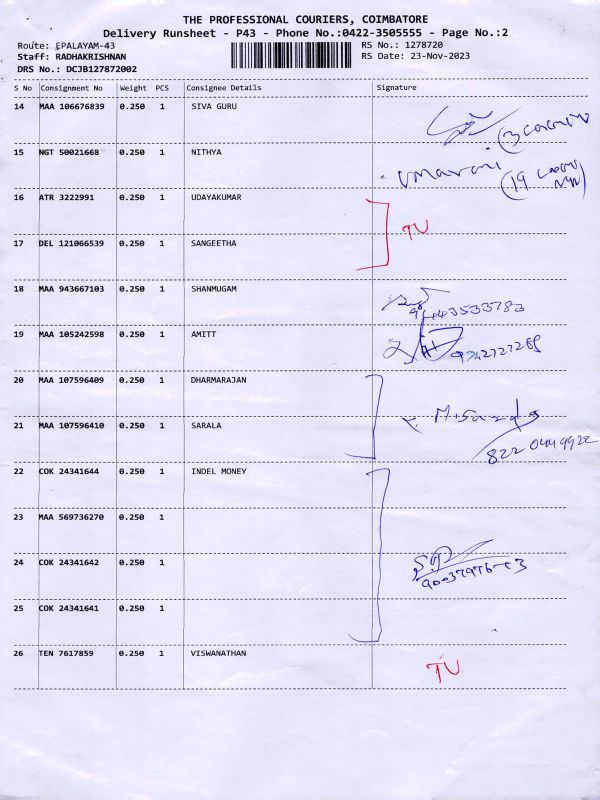 THE PROFESSIONAL COURIERS, COIMBATORE
Delivery Runsheet - P43 - Phone No.:0422-3505555 - Page No.:2
Route: EPALAYAM-43 RS No.: 1278720
Staff: RADHAKRISHNAN RS Date: 23-Nov-2023
DRS No.: DCJB127872002
S No Consignment No Weight PCS Consignee Details Signature
14 MAA 106676839 0.250 1 SIVA GURU
15 NGT 50021668 0.250 1 NITHYA
16 ATR 3222991 0.250 1 UDAYAKUMAR
TU
17 DEL 121066539 0.250 1 SANGEETHA
18 MAA 943667103 0.250 1 SHANMUGAM
19 MAA 105242598 0.250 1 AMITT
20 MAA 107596409 0.250 1 DHARMARAJAN
21 MAA 107596410 0.250 1 SARALA
822 0449922
22 COK 24341644 0.250 1 INDEL MONEY
23 MAA 569736270 0.250 1
24 COK 24341642 0.250 1
25 COK 24341641 0.250 1
26 TEN 7617859 0.250 1 VISWANATHAN
TU